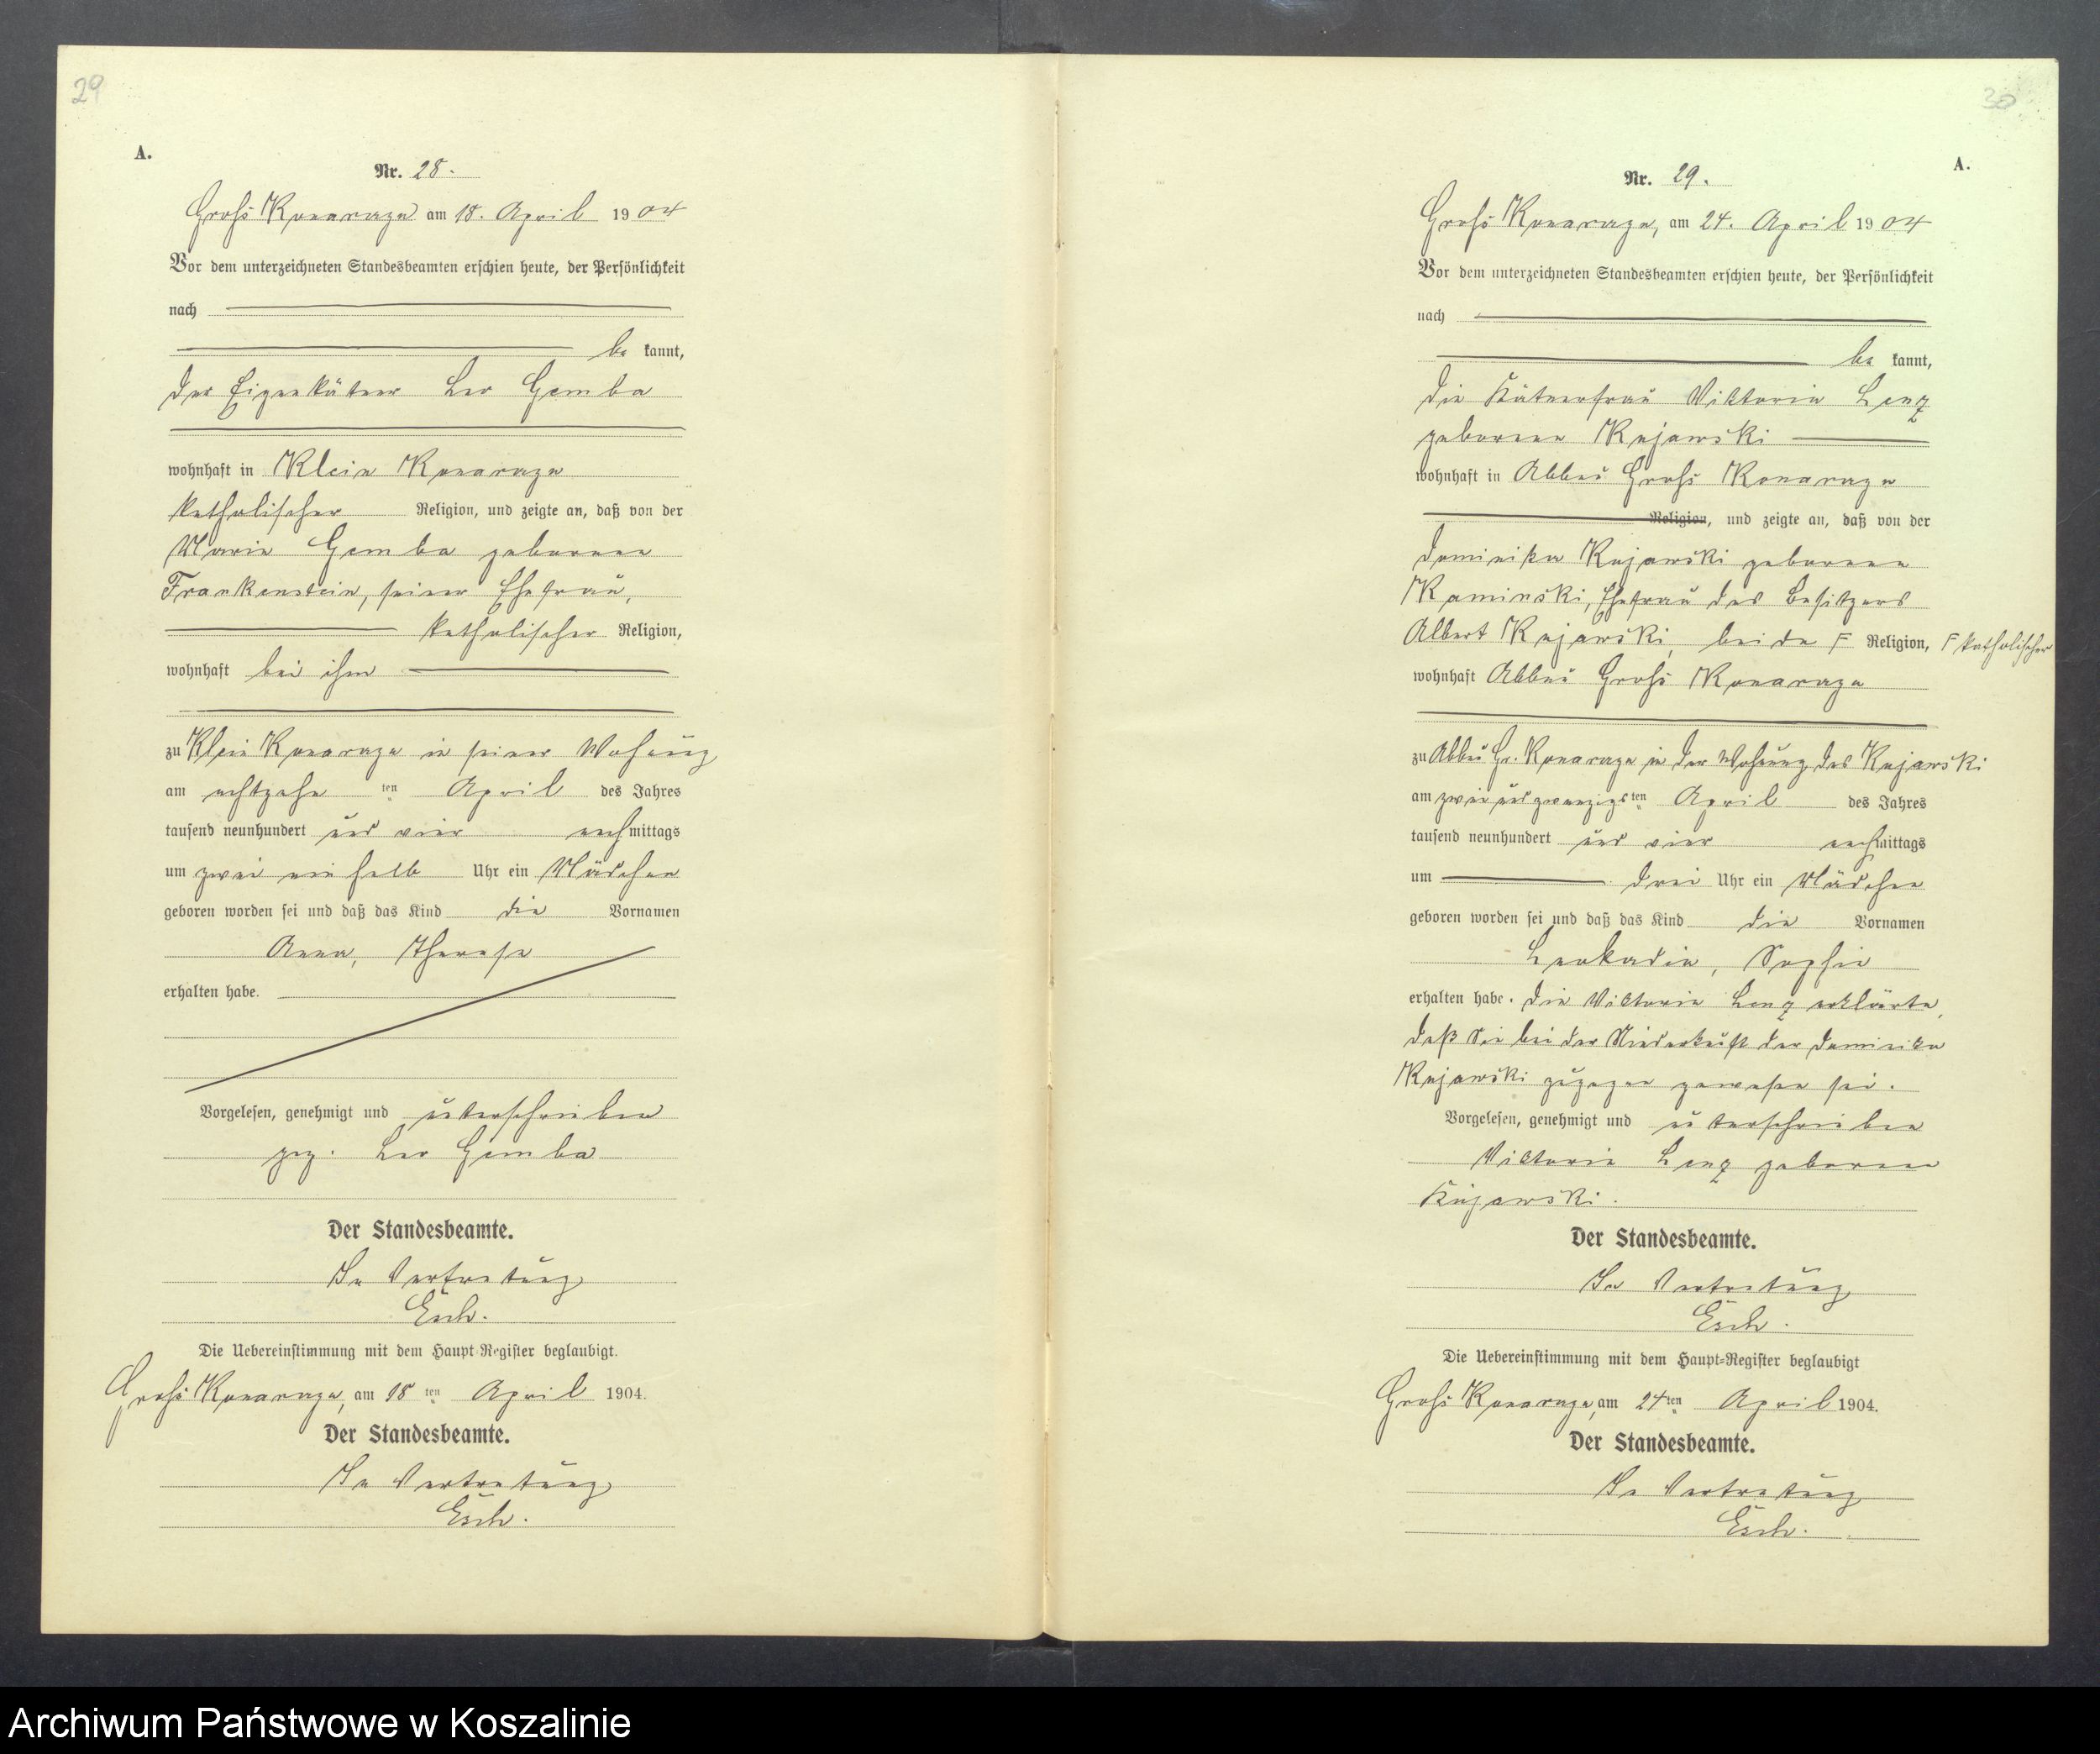 29
A.
Nr. 28.
Groß Konarczyn am 18. April 1904
Vor dem unterzeichneten Standesbeamten erschien heute, der Persönlichkeit
nach
be kannt,
der Eigenkätner Leo Gemba
wohnhaft in Klein Konarczyn
katholischer Religion, und zeigte an, daß von der
Maria Gemba geborene
Frankenstein, seiner Ehefrau,
katholischer Religion,
wohnhaft bei ihm
zu Klein Konarczyn in seiner Wohnung
am achtzehn ten April des Jahres
tausend neunhundert und vier nachmittags
um zwei ein halb Uhr ein Mädchen
geboren worden sei und daß das Kind die Vornamen
Anna, Therese
erhalten habe.
Vorgelesen, genehmigt und unterschrieben
gez. Leo Gemba
Der Standesbeamte.
In Vertretung
Esch.
Die Uebereinstimmung mit dem Haupt-Register beglaubigt.
Groß Konarczyn, am 18ten April 1904.
Der Standesbeamte.
In Vertretung
Esch.
30
A.
Nr. 29.
Groß Konarczyn, am 24. April 1904
Vor dem unterzeichneten Standesbeamten erschien heute, der Persönlichkeit
nach
be kannt,
die Kätnerfrau Viktoria Lenz
geborene Kujawski
wohnhaft in Abbau Groß Konarczyn
Religion, und zeigte an, daß von der
Dominika Kujawski geborene
Kaminski, Ehefrau des Besitzers
Albert Kujawski, beide F Religion, F katholischer
wohnhaft Abbau Groß Konarczyn
zu Abbau Gr. Konarczyn in der Wohnung des Kujawski
am zwei und zwanzigsten April des Jahres
tausend neunhundert und vier nachmittags
um drei Uhr ein Mädchen
geboren worden sei und daß das Kind die Vornamen
Leokadia, Sophie
erhalten habe. Die Viktoria Lenz erklärte,
daß sie bei der Niederkunft der Dominika
Kujawski zugegen gewesen sei.
Vorgelesen, genehmigt und unterschrieben
Viktoria Lenz geborene
Kujawski.
Der Standesbeamte.
In Vertretung
Esch.
Die Uebereinstimmung mit dem Haupt-Register beglaubigt
Groß Konarczyn, am 24ten April 1904.
Der Standesbeamte.
In Vertretung
Esch.
Archiwum Państwowe w Koszalinie